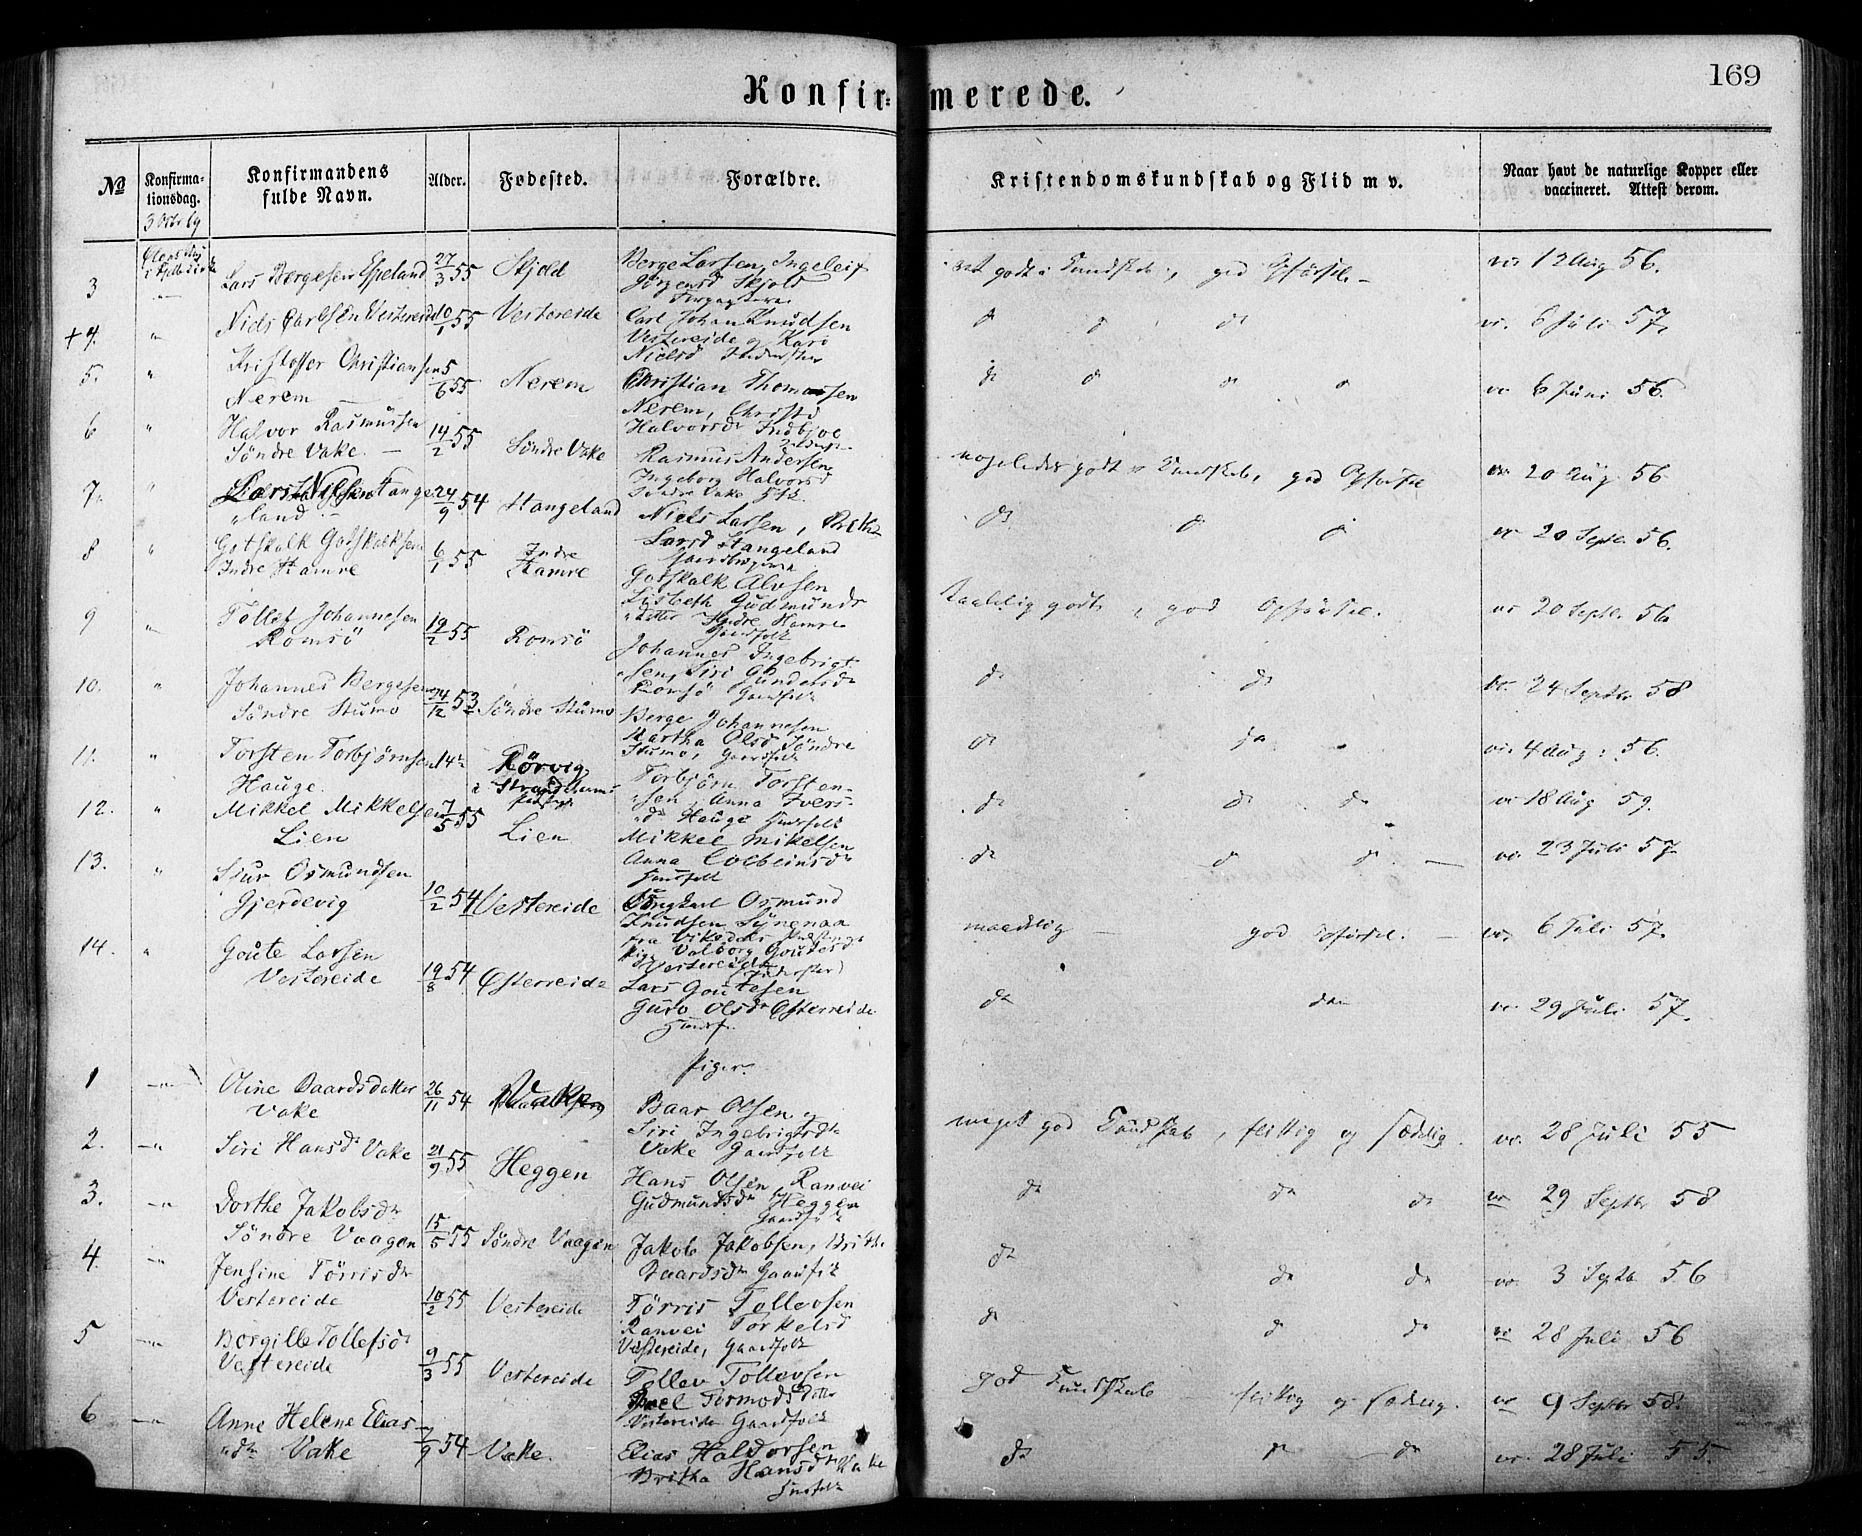 Konfir=merede.
169
No
Konfirma-
tionsdag.
Konfirmandens
fulde Navn.
Alder.
Fødested.
Forældre.
Kristendomskundskab og Flid m v.
Naar havt de naturlige Kopper eller
vaccineret. Attest derom.
3 Octbr 69
3 Lars Bergesen Espeland 27/3 55 Skjold Berge Larsen, Ingeleif
Jørgensd Skjold
godt i Kundskab, god Opførsel vv. 12 Aug 56.
+4. " Niels Carlsen Vestereide 10/1 55 Vestereide Carl Johan Knudsen
Vestereide og Kari
Nielsd
d d d vv. 6 Juli 57.
5. " Kristoffer Christiansen
Nerem 5/6 55 Nerem Christian Thomassen
Nerem, Christi
Halvorsdr
d d d d vv 6 Juni 56.
6 " Halvor Rasmussen
Søndre Vake. 14/2 55 Søndre Vake Rasmus Andersen
Ingeborg Halvorsd
Søndre Vake
nogeledes godt Kundskab, god Opførsel vv 20 Aug 56
7. " Lars Nilsen Stange
land 24/9 54 Stangeland Niels Larsen,
Larsd Stangeland
d d d vv 20 Septbr 56.
8 " Gotskalk Gotskalksen
Indre Hamre 6/1 55 Indre
Hamre Gotskalk Alvsen
Lisbeth Gudmunds
datter Indre Hamre
Gaardfolk
taalelig godt, god Opførsel. vv 20 Septbr 56
9 " Tollef Johannesen
Romsö 19/2 55 Romsö Johannes Ingebrigt-
sen, Siri Gundersdr
Romsö Gaardfolk
d d vv. 24 Septbr 58
10. " Johannes Bergesen
Søndre Stumo 24/12 53 Søndre Stumo Berge Johannesen
Martha Olsd Søndre
Stumo, Gaardfolk
d da vv. 4 Aug: 56.
11. " Torsten Torbjørnsen
Hauge. 14 Rørvig
i Strand Torbjørn Torsten-
sen, Anna Ivers-
dr Hauge Huusfolk
d d d vv 18 Aug 59.
12. " Mikkel Mikkelsen
Lien 7/5 55 Lien Mikkel Mikelsen
Anna Colbeinsdr
Huusfolk
d d d vv. 23 Juli 57.
13. " Siur Osmundsen
Gjerdevig 10/2 54 Vestereide Ungkarl Osmund
Knudsen
fra Vikedals
Pige Valborg Goutes
Vestereide
maadelig god Opførsel. 6 Juli 57.
14. " Goute Larsen
Vestereide 19/8 54 Østereide Lars Goutesen
Guro Olsdr Østereide
d vv. 29 Juli 57.
Piger.
1 Oline Baardsdatter
Vake 26/11 54 Vake Baar Olsen og
Siri Ingebrigtsdr
Vake Gaardfolk
meget god Kundskab, flittig og sædelig. vv. 28 Juli 55
2. Siri Hansdr Vake 21/9 55 Heggen Hans Olsen Ranvei
Gudmundsdr Heggen
Gaardfolk
d d d vv 29 Septbr 58
3. Dorthe Jakobsdr
Søndre Vaagen 15/5 55 Søndre Vaagen Jakob Jakobsen, Brithe
Baardsdr Gaardfolk
d d d vv. 3 Septb 56
4. Jensine Törrisdr
Vestereide 10/2 55 Vestereide Törris Tollevsen
Ranvei Torkelsd
Vestereide, Gaardfolk
d d d vv 28 Juli 56
5 Borgille Tollefsdr
Vestereide 9/3 55 Vestereide Tollev Tollevsen
Tormodsdtter
Vestereide Gaardfolk
god Kundskab flittig og sædelig. vv 9 Septbr 58.
6 Anne Helene Elias-
dr Vake 7/9 54 Vake. Elias Haldorsen
Britha Hansdr Vake
Huusfolk
d d d vv. 28 Juli 55.